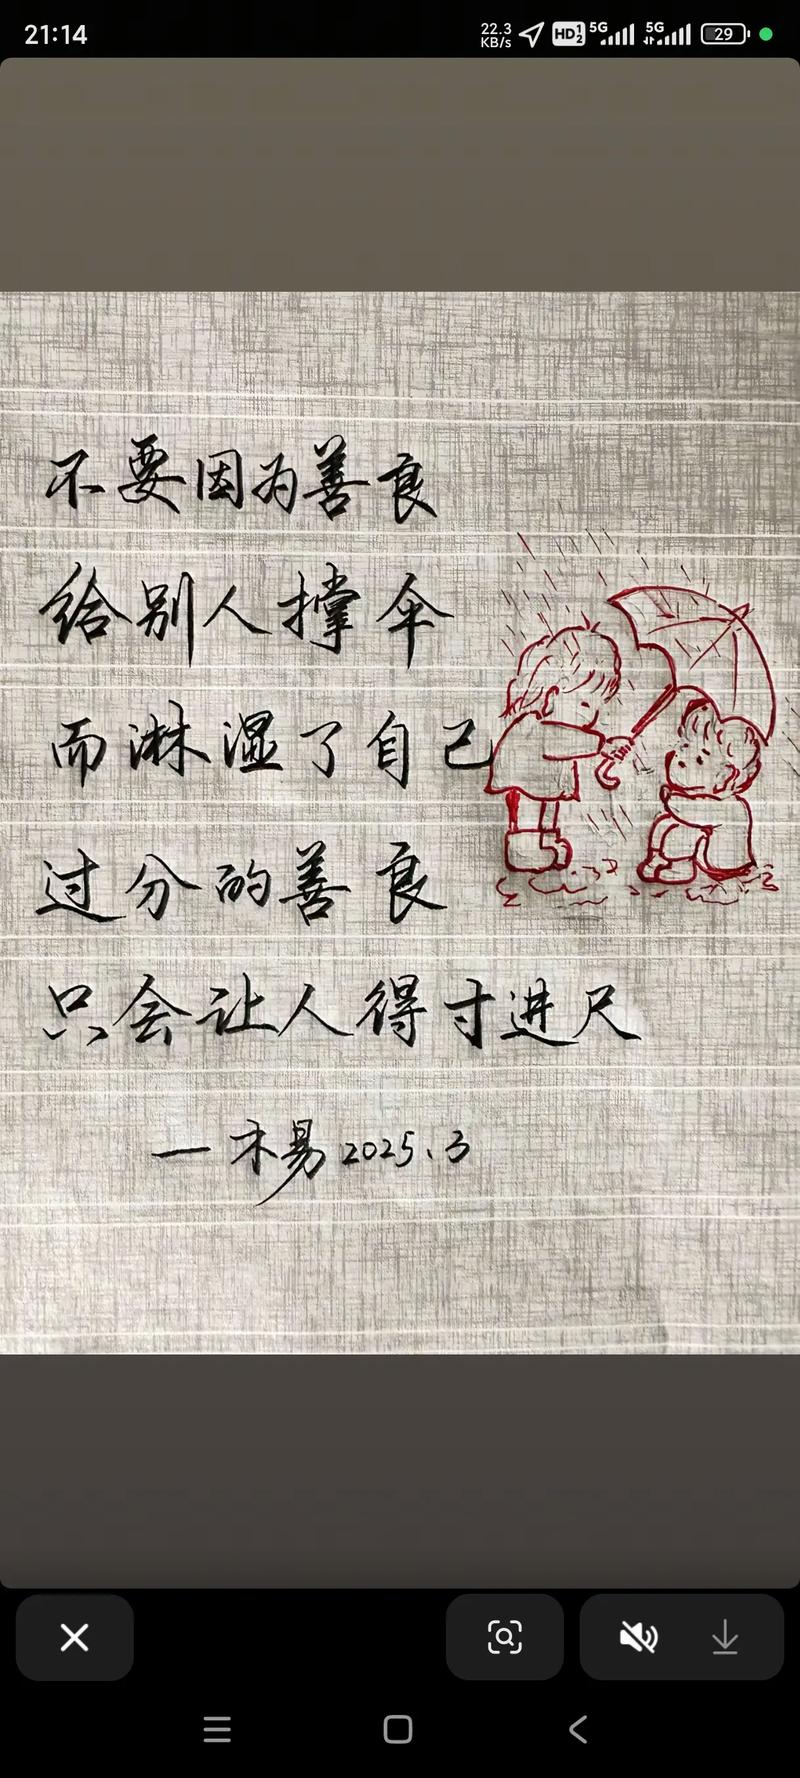 21:14
22.3 KB/s HD 1 2 5G 5G 29
不要因为善良
给别人撑伞
而淋湿了自己
过分的善良
只会让人得寸进尺
一木易2025.3